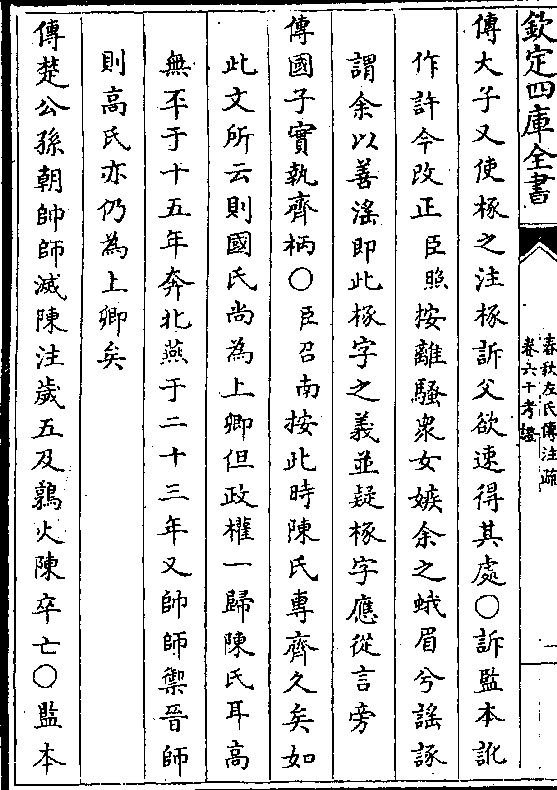 欽定四庫全書
春秋左氏傳注疏
卷六十考證
一
傳大子又使椓之注椓訴父欲速得其處○訴監本訛
作許今改正臣照按離騷衆女嫉余之蛾眉兮謡諑
謂余以善滛即此椓字之義並疑椓字應從言旁
傳國子實執齊柄○臣召南按此時陳氏專齊久矣如
此文所云則國氏尚為上卿但政權一歸陳氏耳高
無㔻于十五年奔北燕于二十三年又帥師禦晉師
則高氏亦仍為上卿矣
傳楚公孫朝帥師滅陳注歲五及鶉火陳卒亡○監本